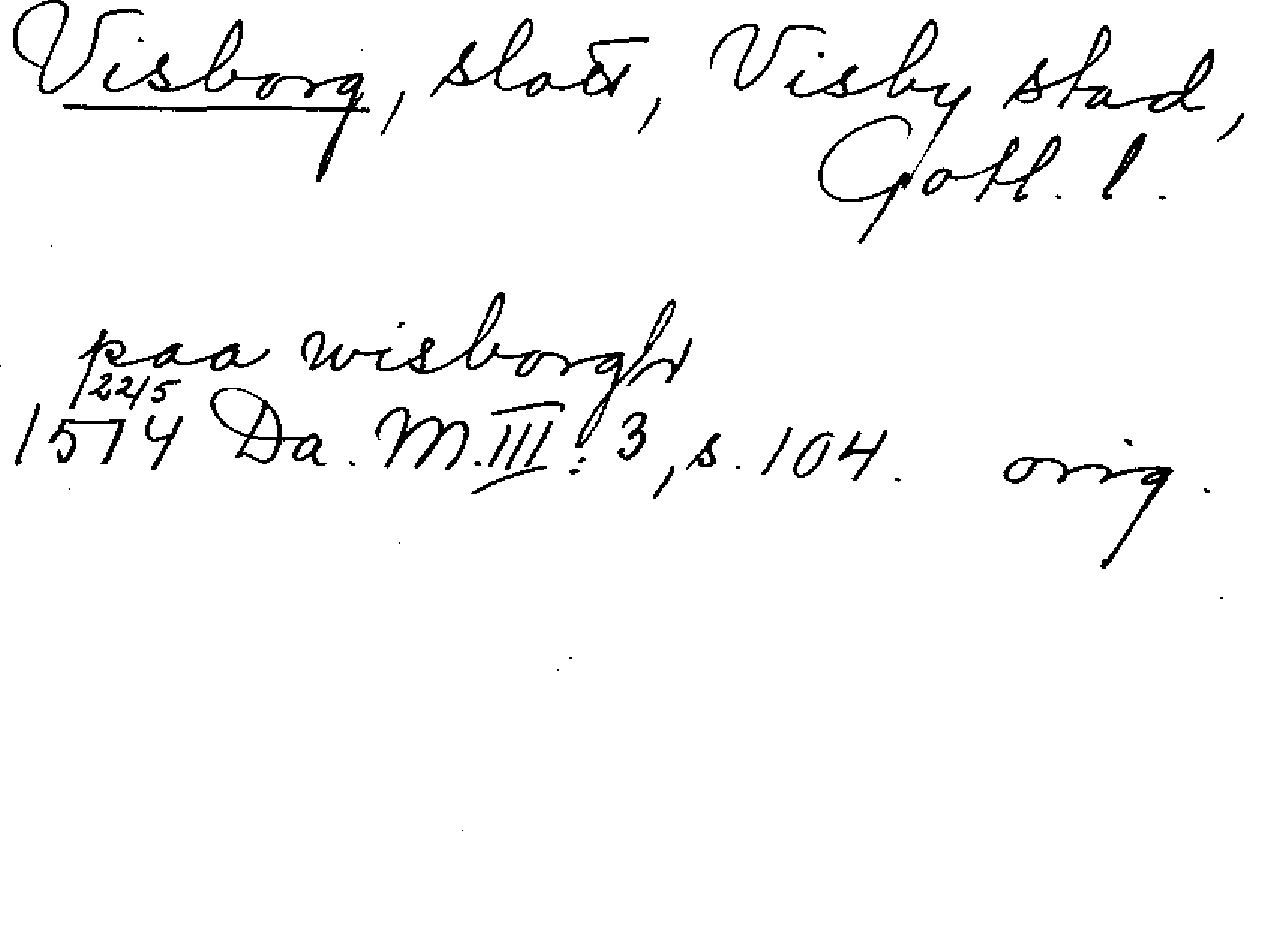 Visborg, slott, Visby stad,
Gotl. l.
paa wisborgh
22/5
1574 Da. M. III: 3, s. 104. orig.